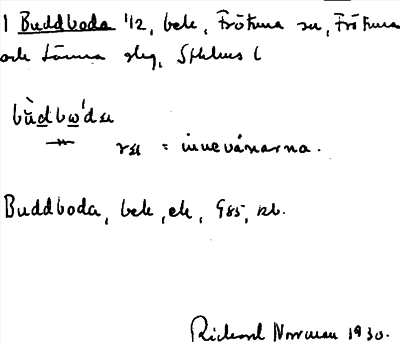 1 Buddboda 1/2, bek, Frötuna sn, Frötuna
och Länna slg, Sthlms l
bùdbω'dεr
rεr = innevånarna.
Buddboda, bek, ek, G85, kb.
Rickard Norrman 1930.